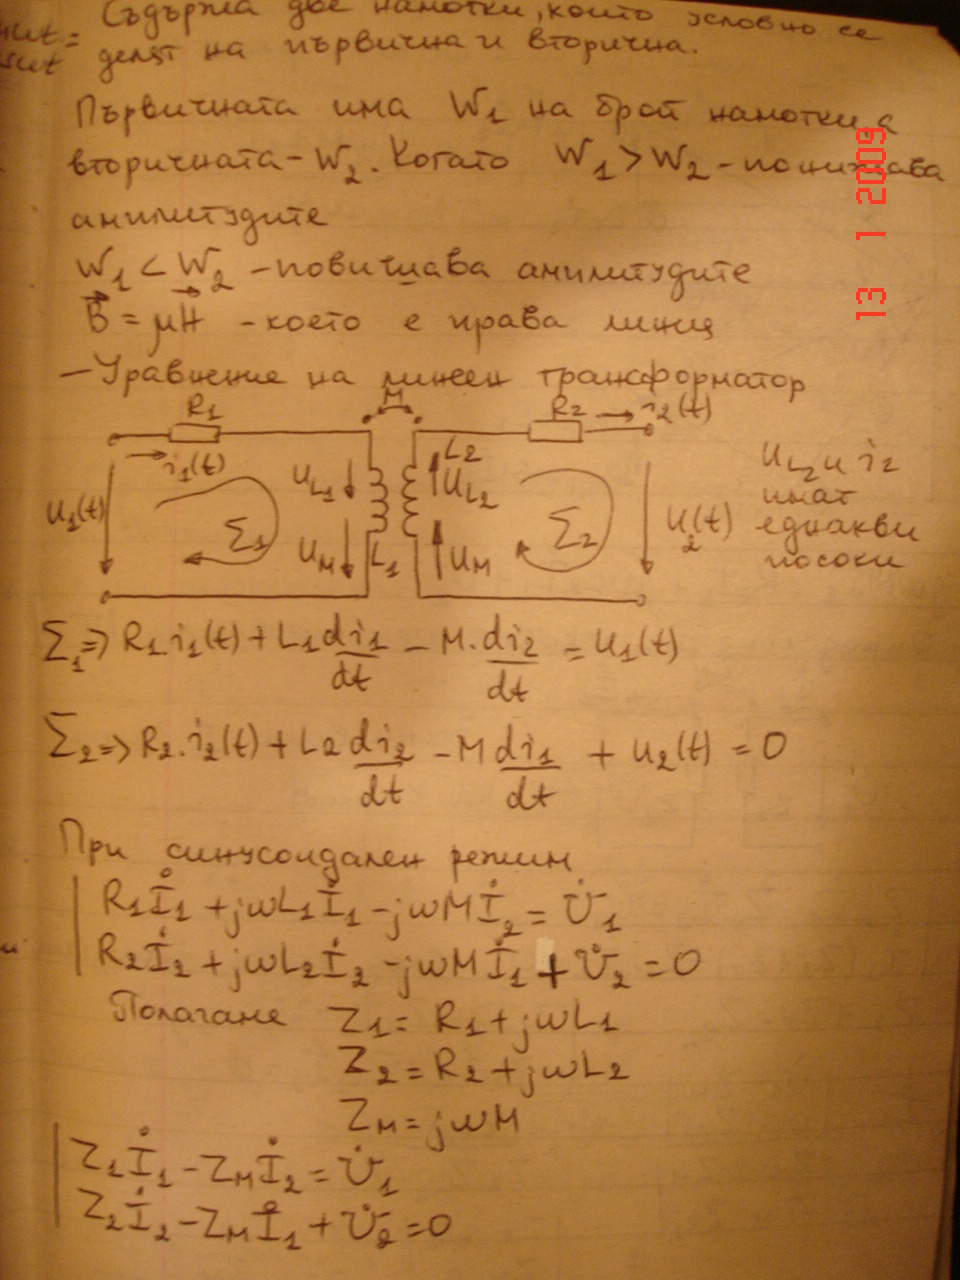 Съдържа две намотки, които условно се
делят на първична и вторична.
Първичната има W1 на брой намотки, а
вторичната - W2. Когато W1 > W2 - понижава
амплитудите
W1 < W2 - повишава амплитудите
B = μH - което е права линия
- Уравнение на линеен трансформатор
M
R1
R2 → i2(t)
i1(t)
L2
UL1
UL2
U1(t)
Σ1
Σ2
U2(t)
UM
L1
UM
UL2 и i2
имат
еднакви
посоки
Σ1 => R1 i1(t) + L1 di1/dt - M. di2/dt = U1(t)
Σ2 => R2. i2(t) + L2 di2/dt - M di1/dt + u2(t) = 0
При синусоидален режим
R1İ1 + jωL1İ1 - jωMİ2 = U̇1
R2İ2 + jωL2İ2 - jωMİ1 + U̇2 = 0
Полагаме Z1 = R1 + jωL1
Z2 = R2 + jωL2
ZM = jωM
Z1İ1 - ZMİ2 = U̇1
Z2İ2 - ZMİ1 + U̇2 = 0
13 1 2009